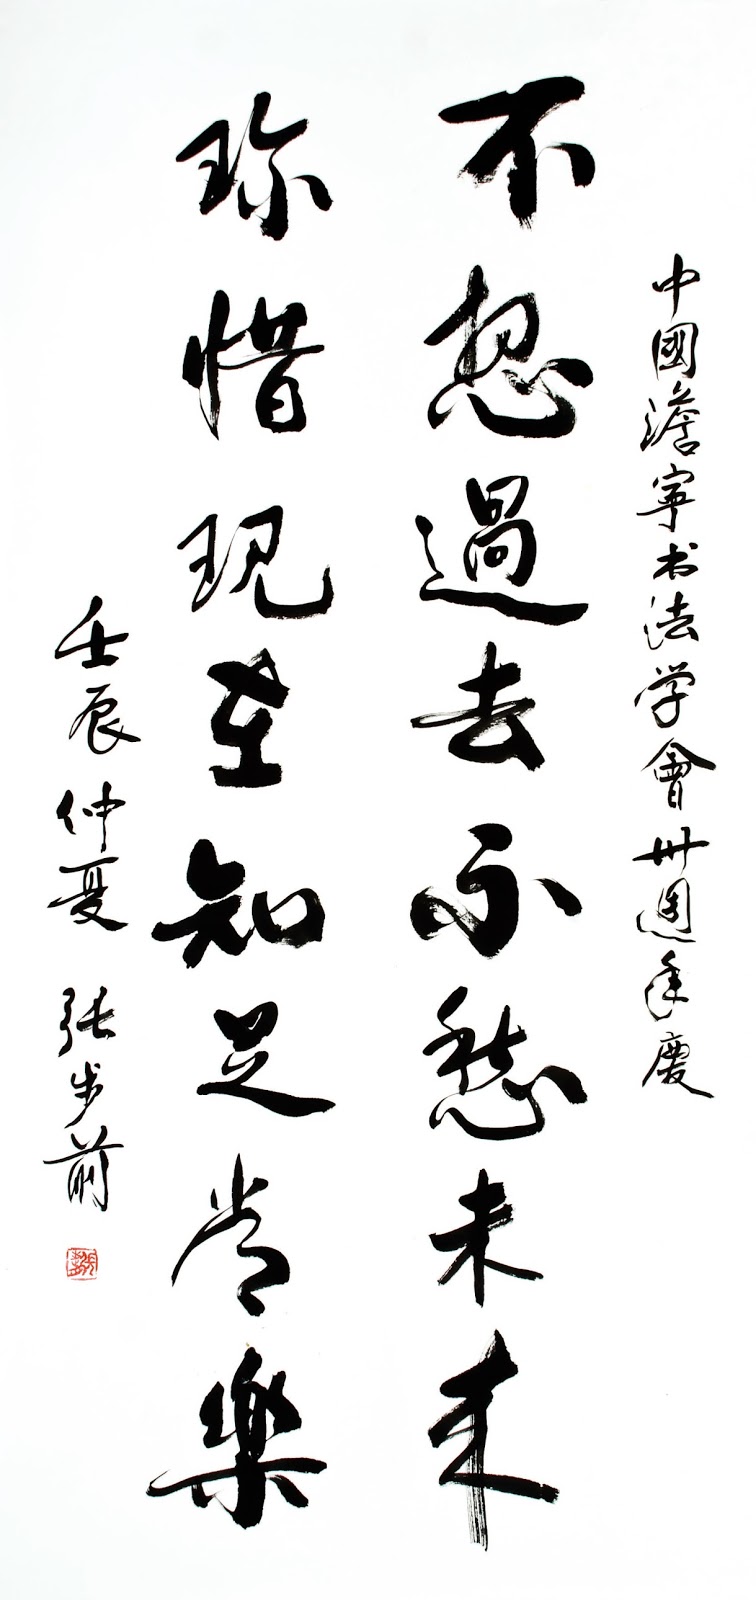 中國澹寧书法学會卅週年慶
不想過去不愁未来
珍惜现在知足常樂
壬辰仲夏 张步前